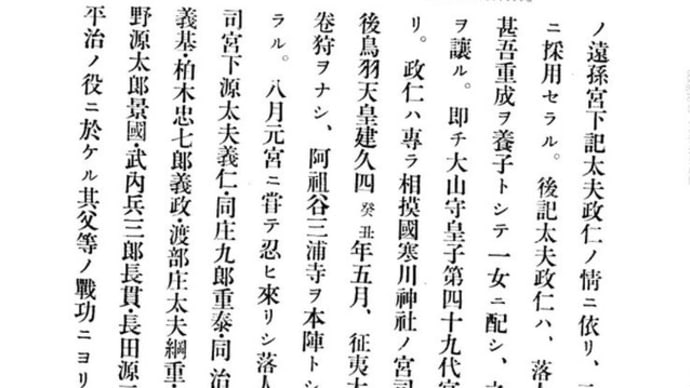 ノ遠孫宮下記太夫政仁ノ情ニ依リ、
ニ採用セラル。後記太夫政仁ハ、落
甚吾重成ヲ養子トシテ一女ニ配シ、
ヲ讓ル。即チ大山守皇子第四十九代宮
リ。政仁ハ專ラ相摸國寒川神社ノ宮司
後鳥羽天皇建久四癸丑年五月、征夷大
卷狩ヲナシ、阿祖谷三浦寺ヲ本陣トシ
ラル。八月元宮ニ甞テ忍ヒ來リシ落人
司宮下源太夫義仁・同庄九郎重泰・同治
義基・柏木忠七郎義政・渡部庄太夫綱重・
野源太郎景國・武內兵三郎長貫・長田源
平治ノ役ニ於ケル其父等ノ戰功ニヨリ